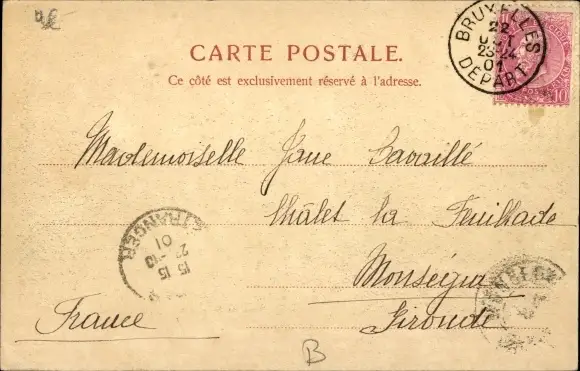 CARTE POSTALE.
Ce côté est exclusivement réservé à l'adresse.
BRUXELLES
22
OCT
23-24
01
DÉPART
10
Mademoiselle Jane Cavaillé
Châlet la Feuillade
Monségur
Gironde
France
ETRANGER
15 15
-10
01
B